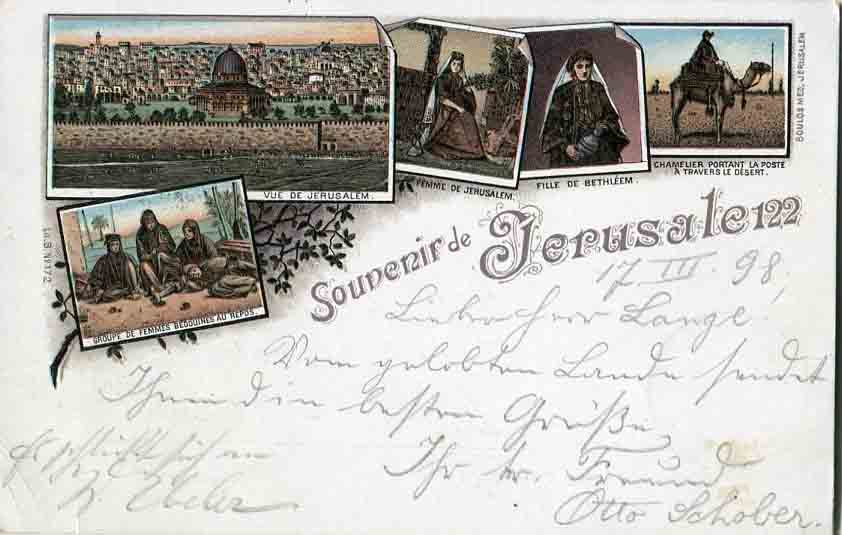 VUE DE JERUSALEM.
FEMME DE JERUSALEM.
FILLE DE BETHLÉEM.
CHAMELIER PORTANT LA POSTE
À TRAVERS LE DÉSERT.
BOULOS MEO, JERUSALEM
GROUPE DE FEMMES BÉDOUINES AU REPOS.
Souvenir de Jerusale122
17. III. 98.
Lieber Herr Lange!
Vom gelobten Lande sendet
Ihnen die besten Grüße
Ihr tr. Freund
Otto Schober.
Es schließt sich an